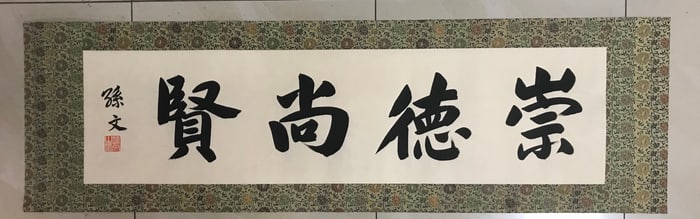 崇德尚賢
孫文